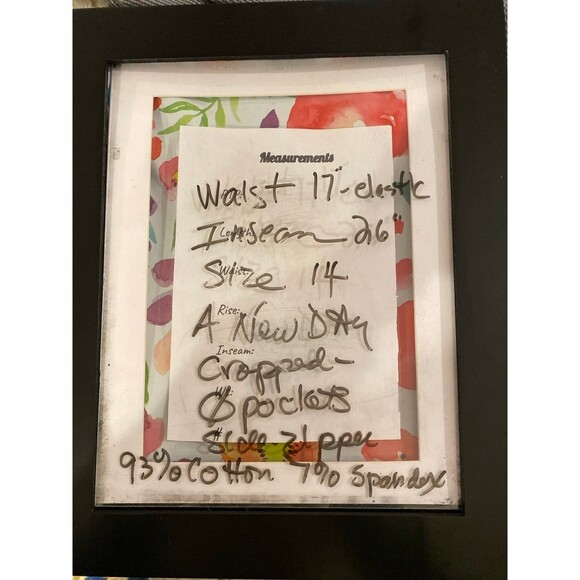 Measurements
Waist 17"-elastic
Length:
Inseam 26"
Waist:
Size 14
Rise:
A New Day
Inseam:
Cropped-
Ø pockets
Side zipper
93% Cotton 7% Spandex